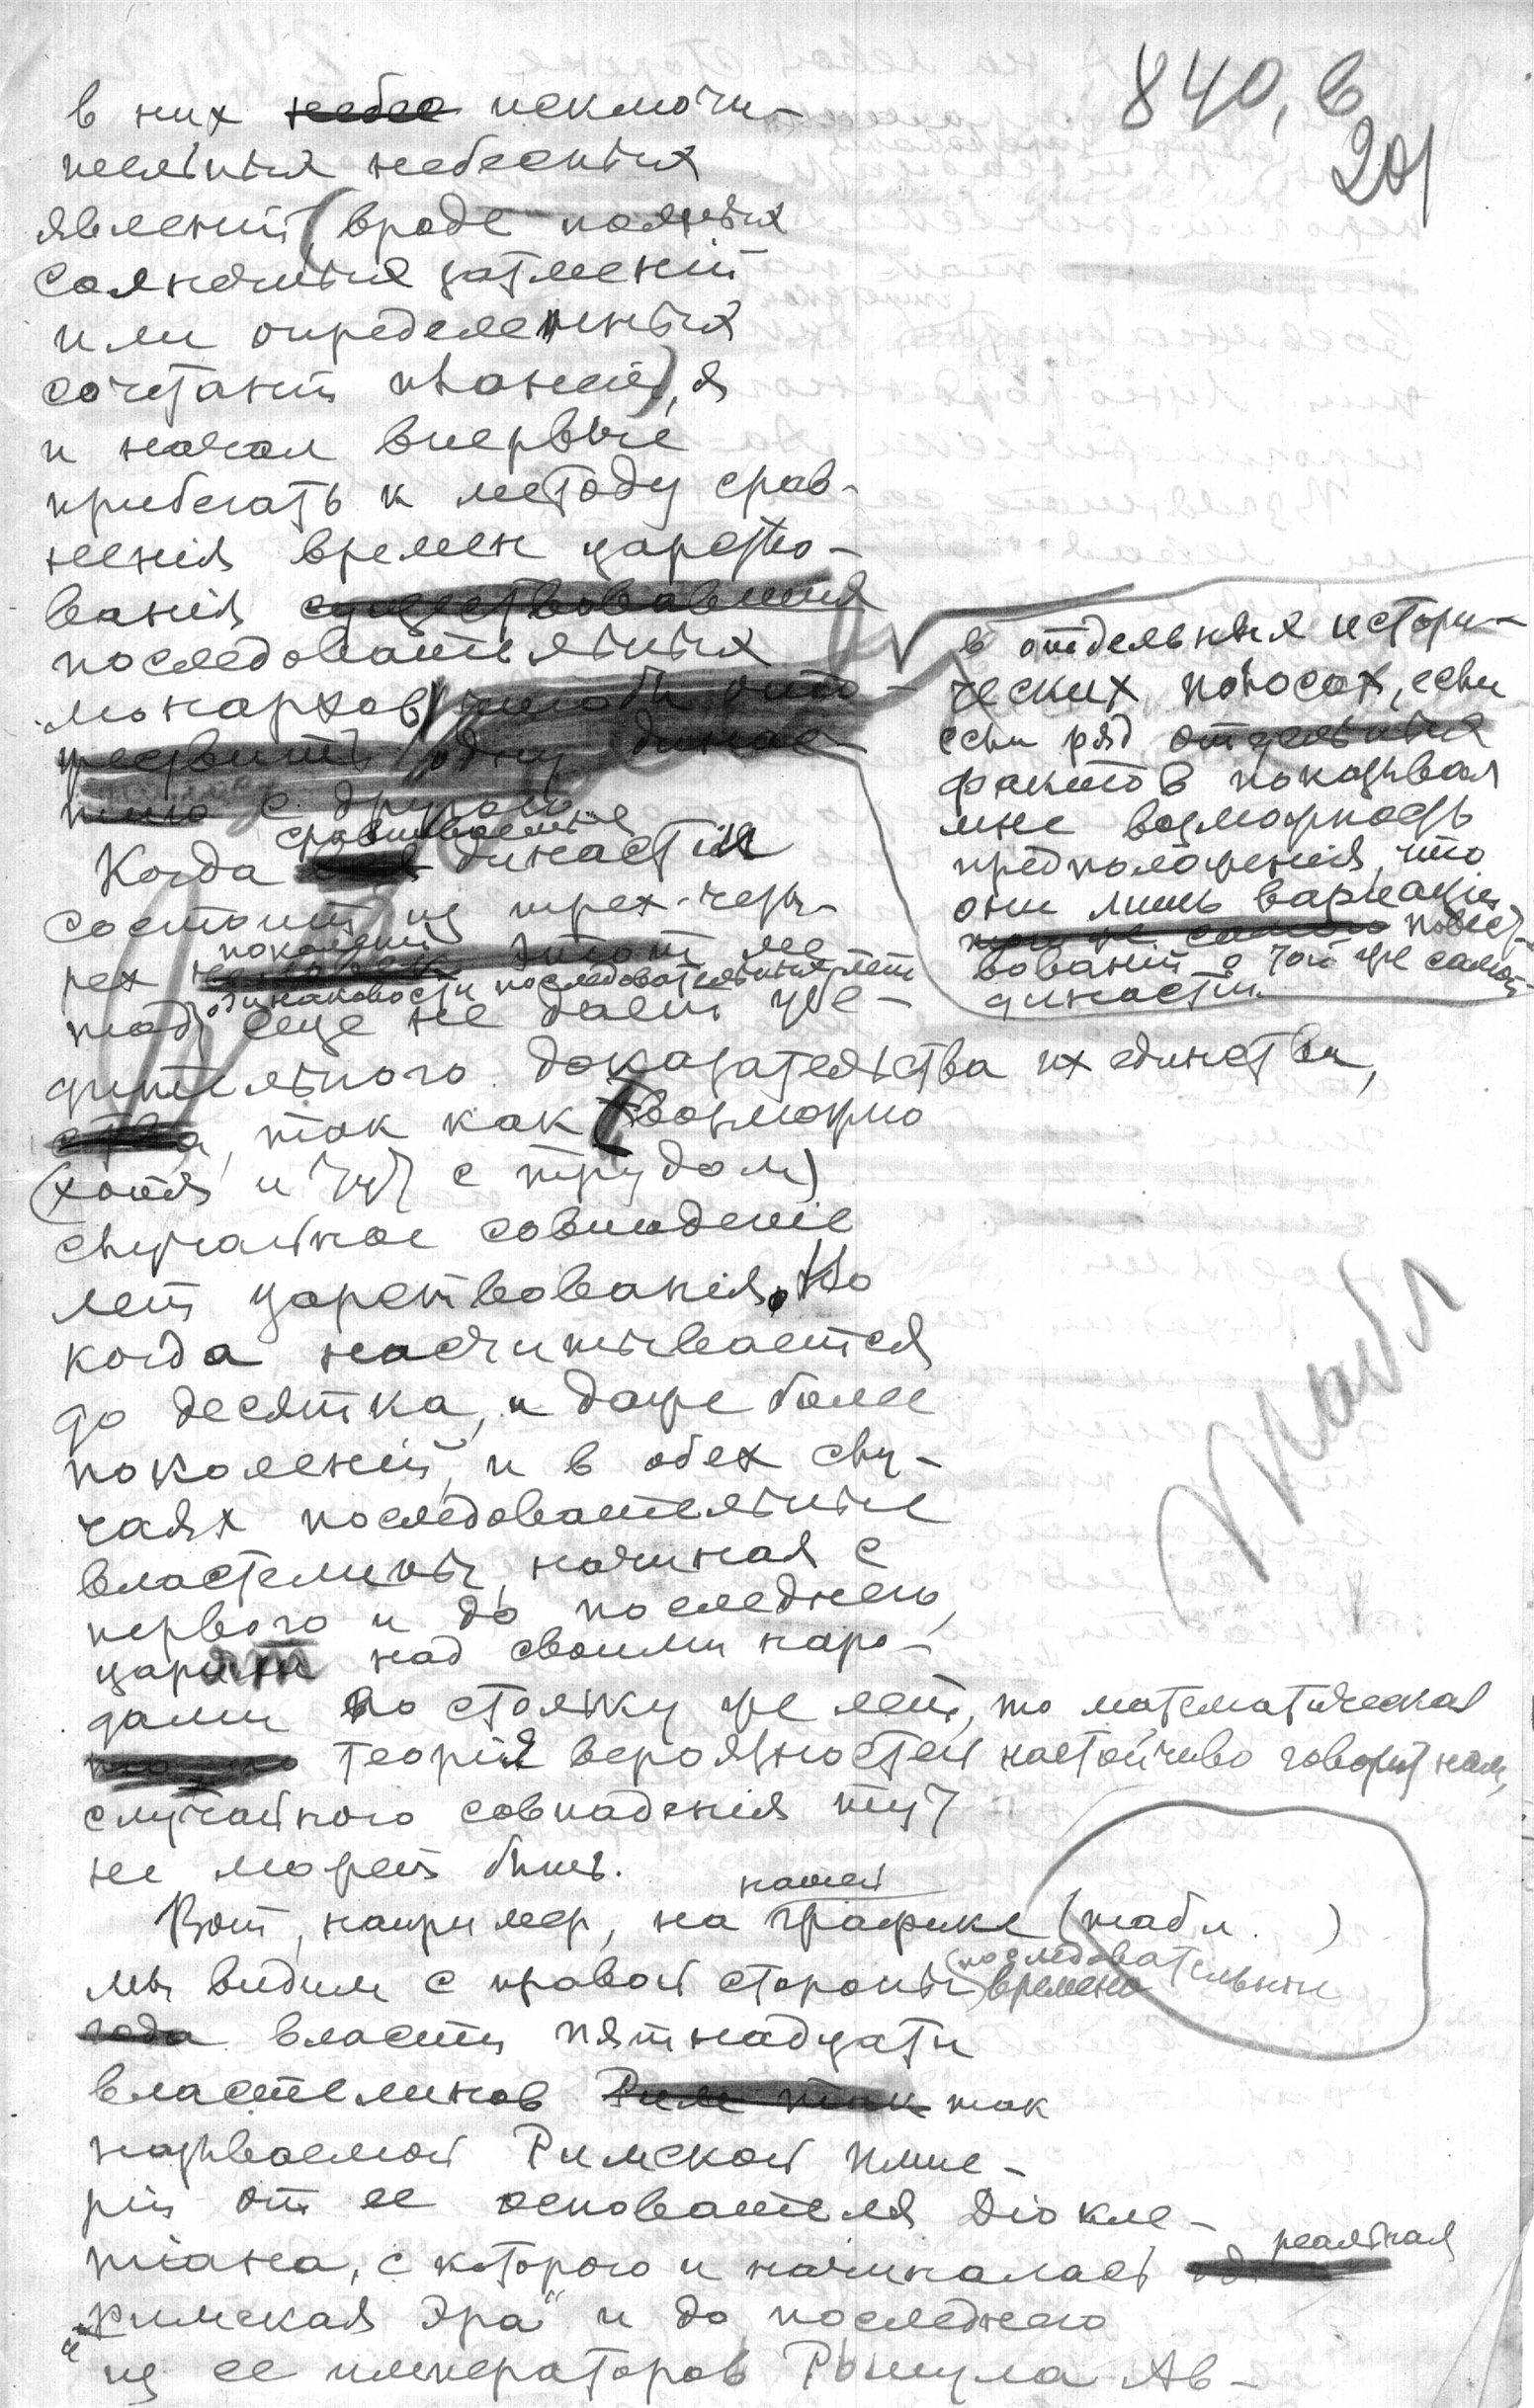 840, в
201
в них небес исключи-
тельных небесных
явленій (вроде полных
солнечных затменій
или определенных
сочетаній планет), я
и начал впервые
прибегать к методу срав-
ненія времен царство-
ванія существовавших
последовательных
монархов, чтобы ото-
ждествить одну динас-
тию с другою
в отдельных истори-
ческих полосах, если
если ряд отдельных
фактов показывал
мне возможность
предположенія, что
они лишь варіаціи
повест-
вованій о той же самой
династіи.
сравниваемыя
Когда династіи
состоит из трех-четы-
рех поколеній этот ме-
одинаковости последовательных лет
тод еще не дает убе-
дительного доказательства их единства,
ства, так как возможно
(хотя и тут с трудом)
случайное совпаденіе
лет царствованія. Но
когда насчитывается
до десятка, и даже более
поколеній, и в обех слу-
чаях последовательные
властелины, начиная с
первого и до последнего,
царят над своими наро-
дами по стольку же лет, то математическая
теорія вероятностей настойчиво говорит нам,
случайного совпаденія тут
не может быть.
табл
нашей
Вот, например, на графике (табл. )
мы видим с правой стороны последовательныя
времена
года власти пятнадцати
властелинов Рим так так
называемой Римской Импе-
ріи от ее основателя Діокле-
тіана, с которого и начиналась реальная
"римская эра" и до последнего
из ее императоров Ромула Ав-